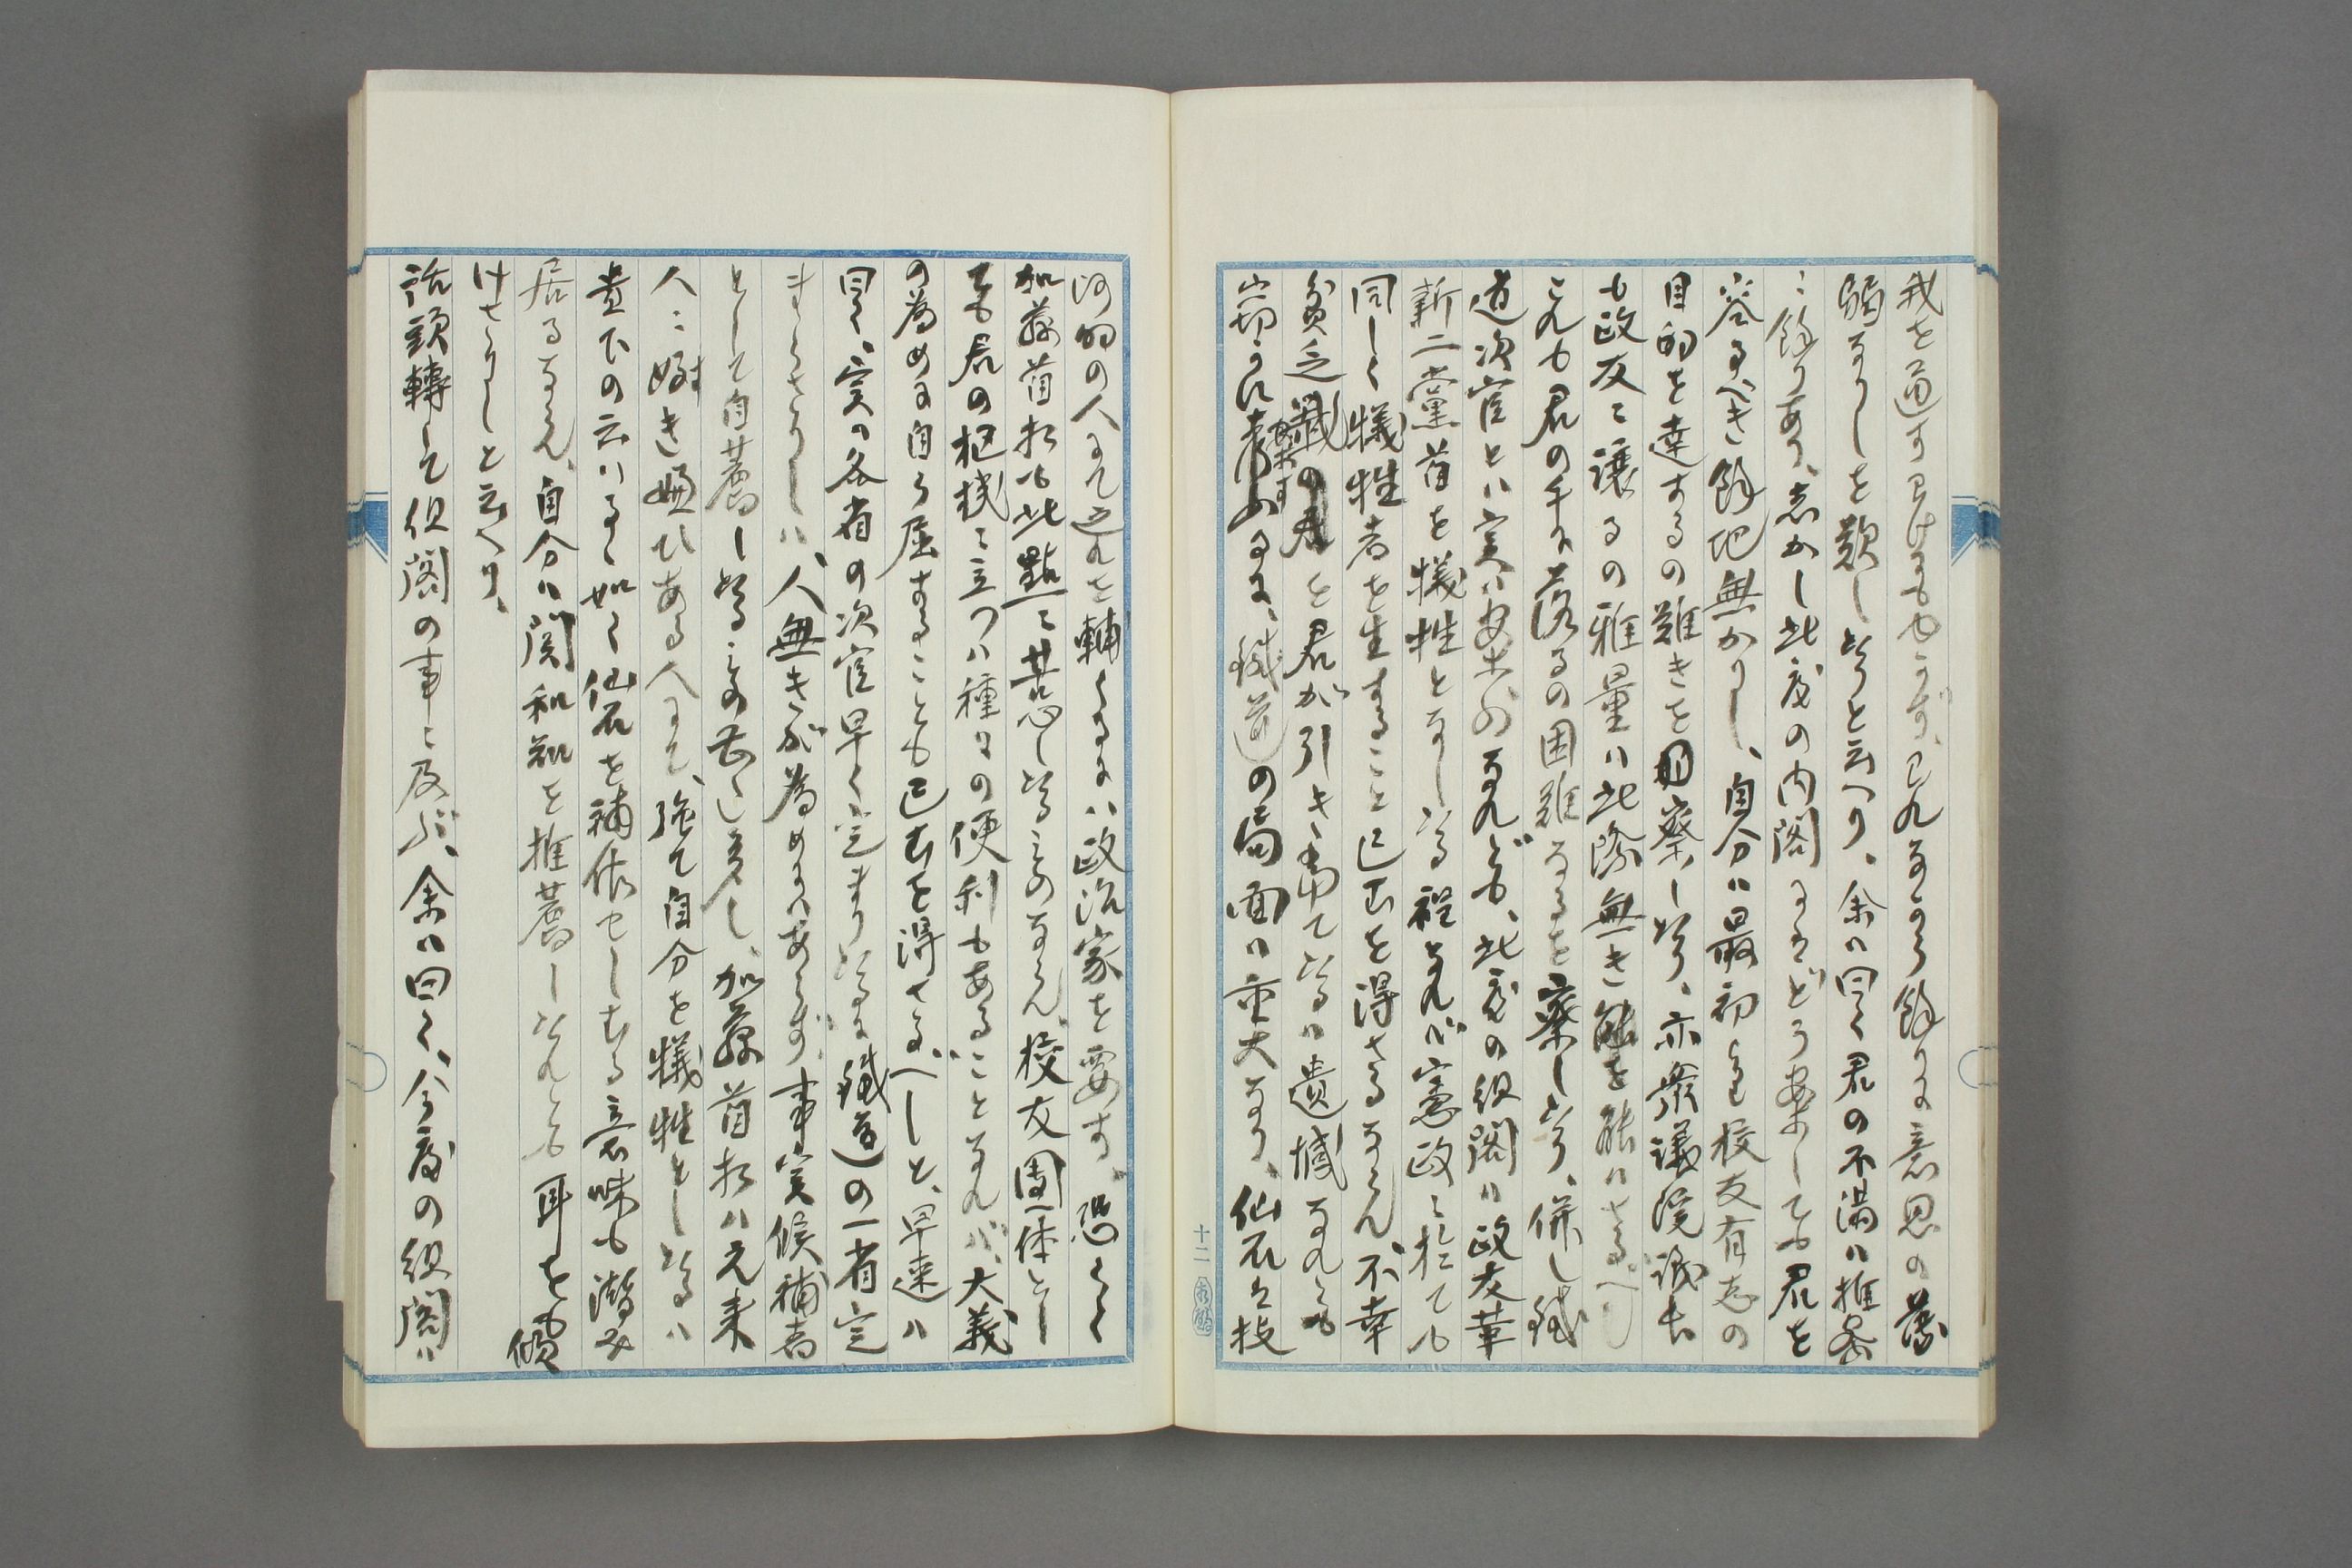 我を通す可けにもゆかず、已れながら餘りに意思の薄
弱なりしを歎し居ると云へり、余は曰く君の不満は推察
に餘りあり、志かし此度の内閣にはどう考しても君を
容るべき餘地無かりし、自分は最初より校友有志の
目的を達するの難きを明察し居り、亦衆議院議長
も政友に譲るの雅量は此際無き能を能はざるべし
これも君の手に落るの困難なるを察し居り、併し鐵
道次官とは実は案外なれども、此度の組閣は政友革
新二黨首を犠牲となし居る程なれば憲政に於ても
同しく犠牲者を生ずること已むを得ざるならん不幸
貧乏籤の を君が引き当て居るは遺憾なれども
窃かに考ふるに、鐵道の局面は重大なり、仙石は技
術的の人にて之れを輔くるには政治家を要す、恐らく
加藤首相も此點に苦心し居るものならん、校友團体とし
ても君の枢機に立つは種々の便利もあることなれば、大義
の為めに自ら屈することも已むを得ざるべしと、早速は
曰く、実は各省の次官早く定まり居るに鐵道の一省定
まらざりしは、人無きが為めにはあらず、事実候補者
として自薦し居るもの甚だ多し、加藤首相は元来
人に好き嫌ひある人にて、強て自分を犠牲とし居るは
貴下の云はるゝ如く仙石を補佐せしむる意味も潜み
居るならん、自分は関和知を推薦し居れども耳をも傾
けざりしと云へり、
話頭轉して組閣の事に及ぶ、余は曰く、今度の組閣は
十二